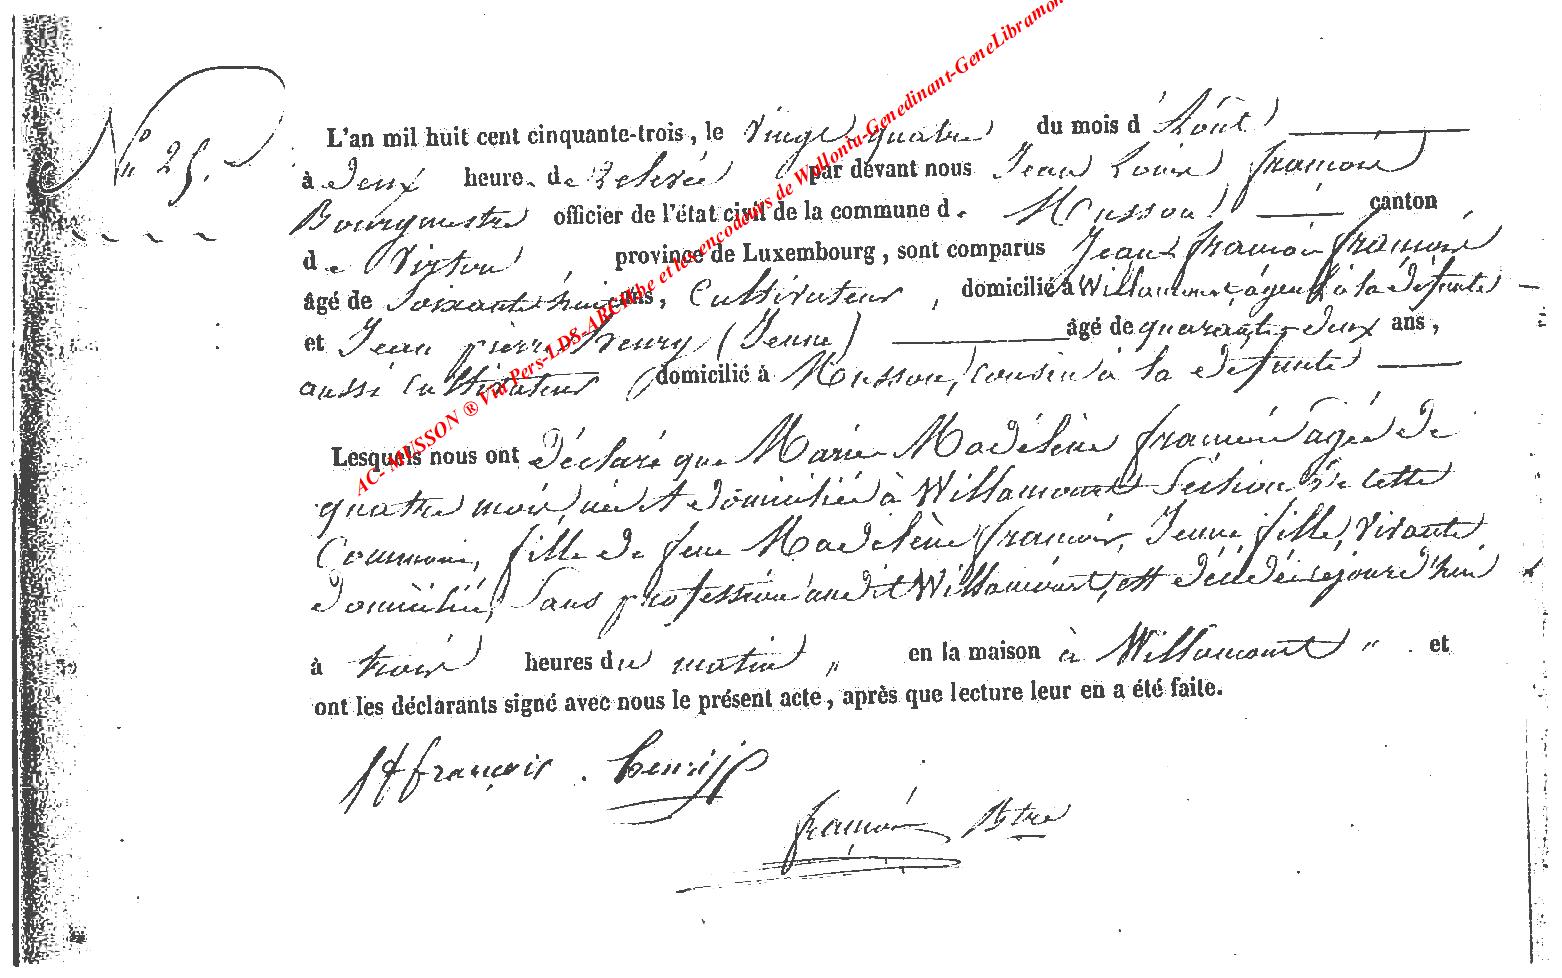 N° 25.
L'an mil huit cent cinquante-trois, le vingt quatre du mois d'Août
à deux heure. de relevée par devant nous Jean Louis françois
Bourgmestre officier de l'état civil de la commune d. Musson canton
de Virton, province de Luxembourg, sont comparus Jean françois françois
âgé de Soixante huit ans, Cultivateur, domicilié à Willancourt, à la défunte
et Jean pierre henry (Jeune) âgé de quarante deux ans,
aussi cultivateur domicilié à Musson, cousin à la défunte
Lesquels nous ont déclaré que Marie Madélène françois agée de
quatre mois, née et domiciliée à Willancourt Section de cette
Commune, fille de feue Madélène françois, Jeune fille, vivante
domicilié, Sans profession audit Willancourt, est décédée aujourd'hui
à trois heures du matin " en la maison à Willancourt " et
ont les déclarants signé avec nous le présent acte, après que lecture leur en a été faite.
françois . henry
françois Btre
AC- MUSSON ® Via Pers-LDS-ARCH.be et les encodeurs de Wallonia-Genedinant-GeneLibramon